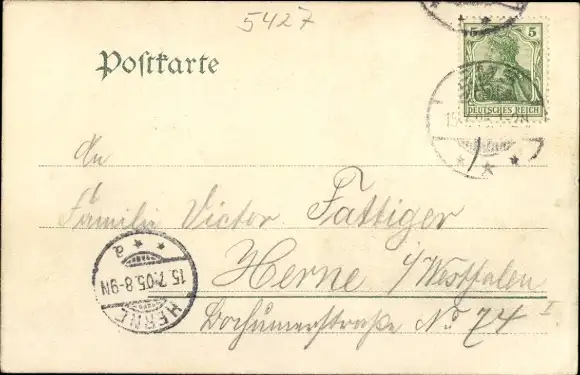 5427
Postkarte
5 5
DEUTSCHES REICH
An
Familie Victor Fattiger
Herne i/Westfalen
Bochumerstraße No 74 I
HERNE
15.7.05.8-9N
a